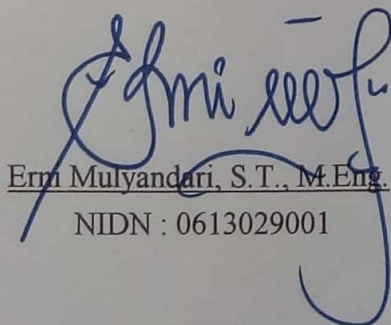 Erni Mulyandari, S.T., M.Eng.
NIDN : 0613029001